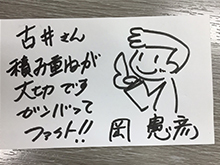 古井さん
積み重ねが
大切です
ガンバって
ファイト!!
岡 憲彦